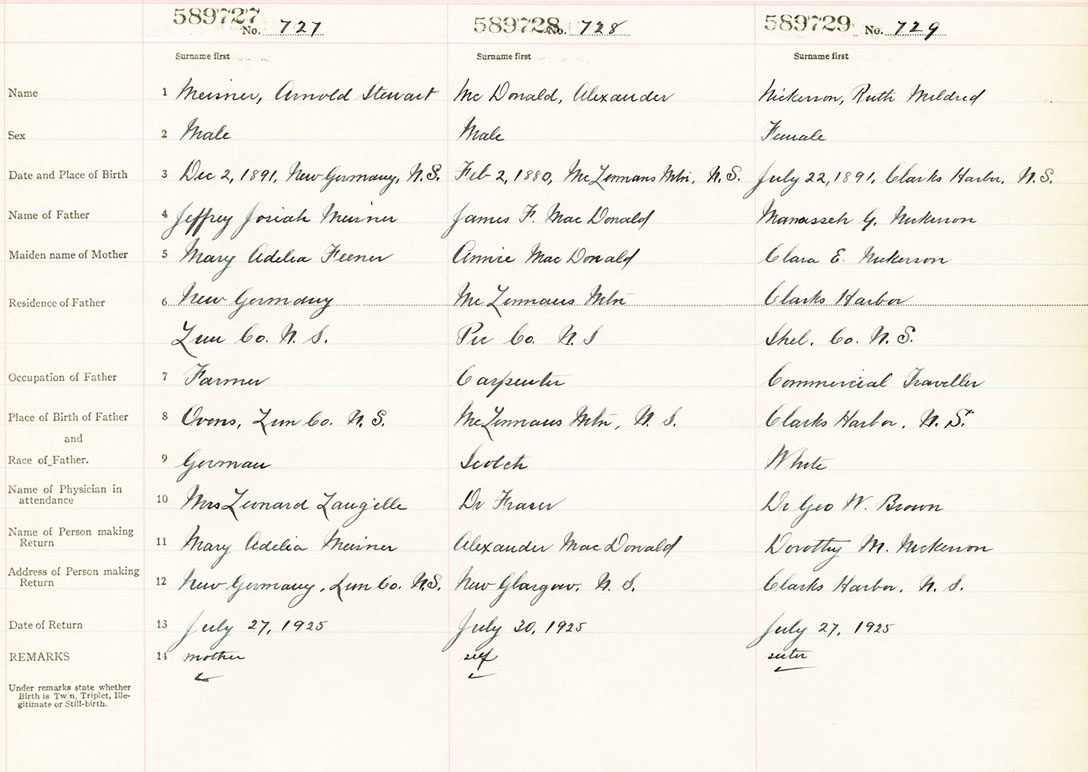 589727 No. 727 589728 No. 728 589729 No. 729
Surname first Surname first Surname first
Name 1 Meisner, Arnold Stewart Mc Donald, Alexander Nickerson, Ruth Mildred
Sex 2 Male Male Female
Date and Place of Birth 3 Dec 2, 1891, New Germany, N.S. Feb 2, 1880, McLennans Mtn, N.S. July 22, 1891, Clarks Harbor, N.S.
Name of Father 4 Jeffrey Josiah Meisner James F. Mac Donald Manasseh G. Nickerson
Maiden name of Mother 5 Mary Adelia Feener Annie Mac Donald Clara E. Nickerson
Residence of Father 6 New Germany McLennans Mtn Clarks Harbor
Lun Co. N. S. Pic Co. N. S Shel. Co. N. S.
Occupation of Father 7 Farmer Carpenter Commercial Traveller
Place of Birth of Father 8 Ovens, Lun Co. N. S. McLennans Mtn, N. S. Clarks Harbor, N. S.
and
Race of Father. 9 German Scotch White
Name of Physician in
attendance 10 Mrs Leonard Langille Dr Fraser Dr Geo W. Brown
Name of Person making
Return 11 Mary Adelia Meisner Alexander Mac Donald Dorothy M. Nickerson
Address of Person making
Return 12 New Germany, Lun Co. N.S. New Glasgow, N. S. Clarks Harbor, N. S.
Date of Return 13 July 27, 1925 July 30, 1925 July 27, 1925
REMARKS 14 mother self sister
Under remarks state whether
Birth is Tw n, Triplet, Ille-
gitimate or Still-birth.